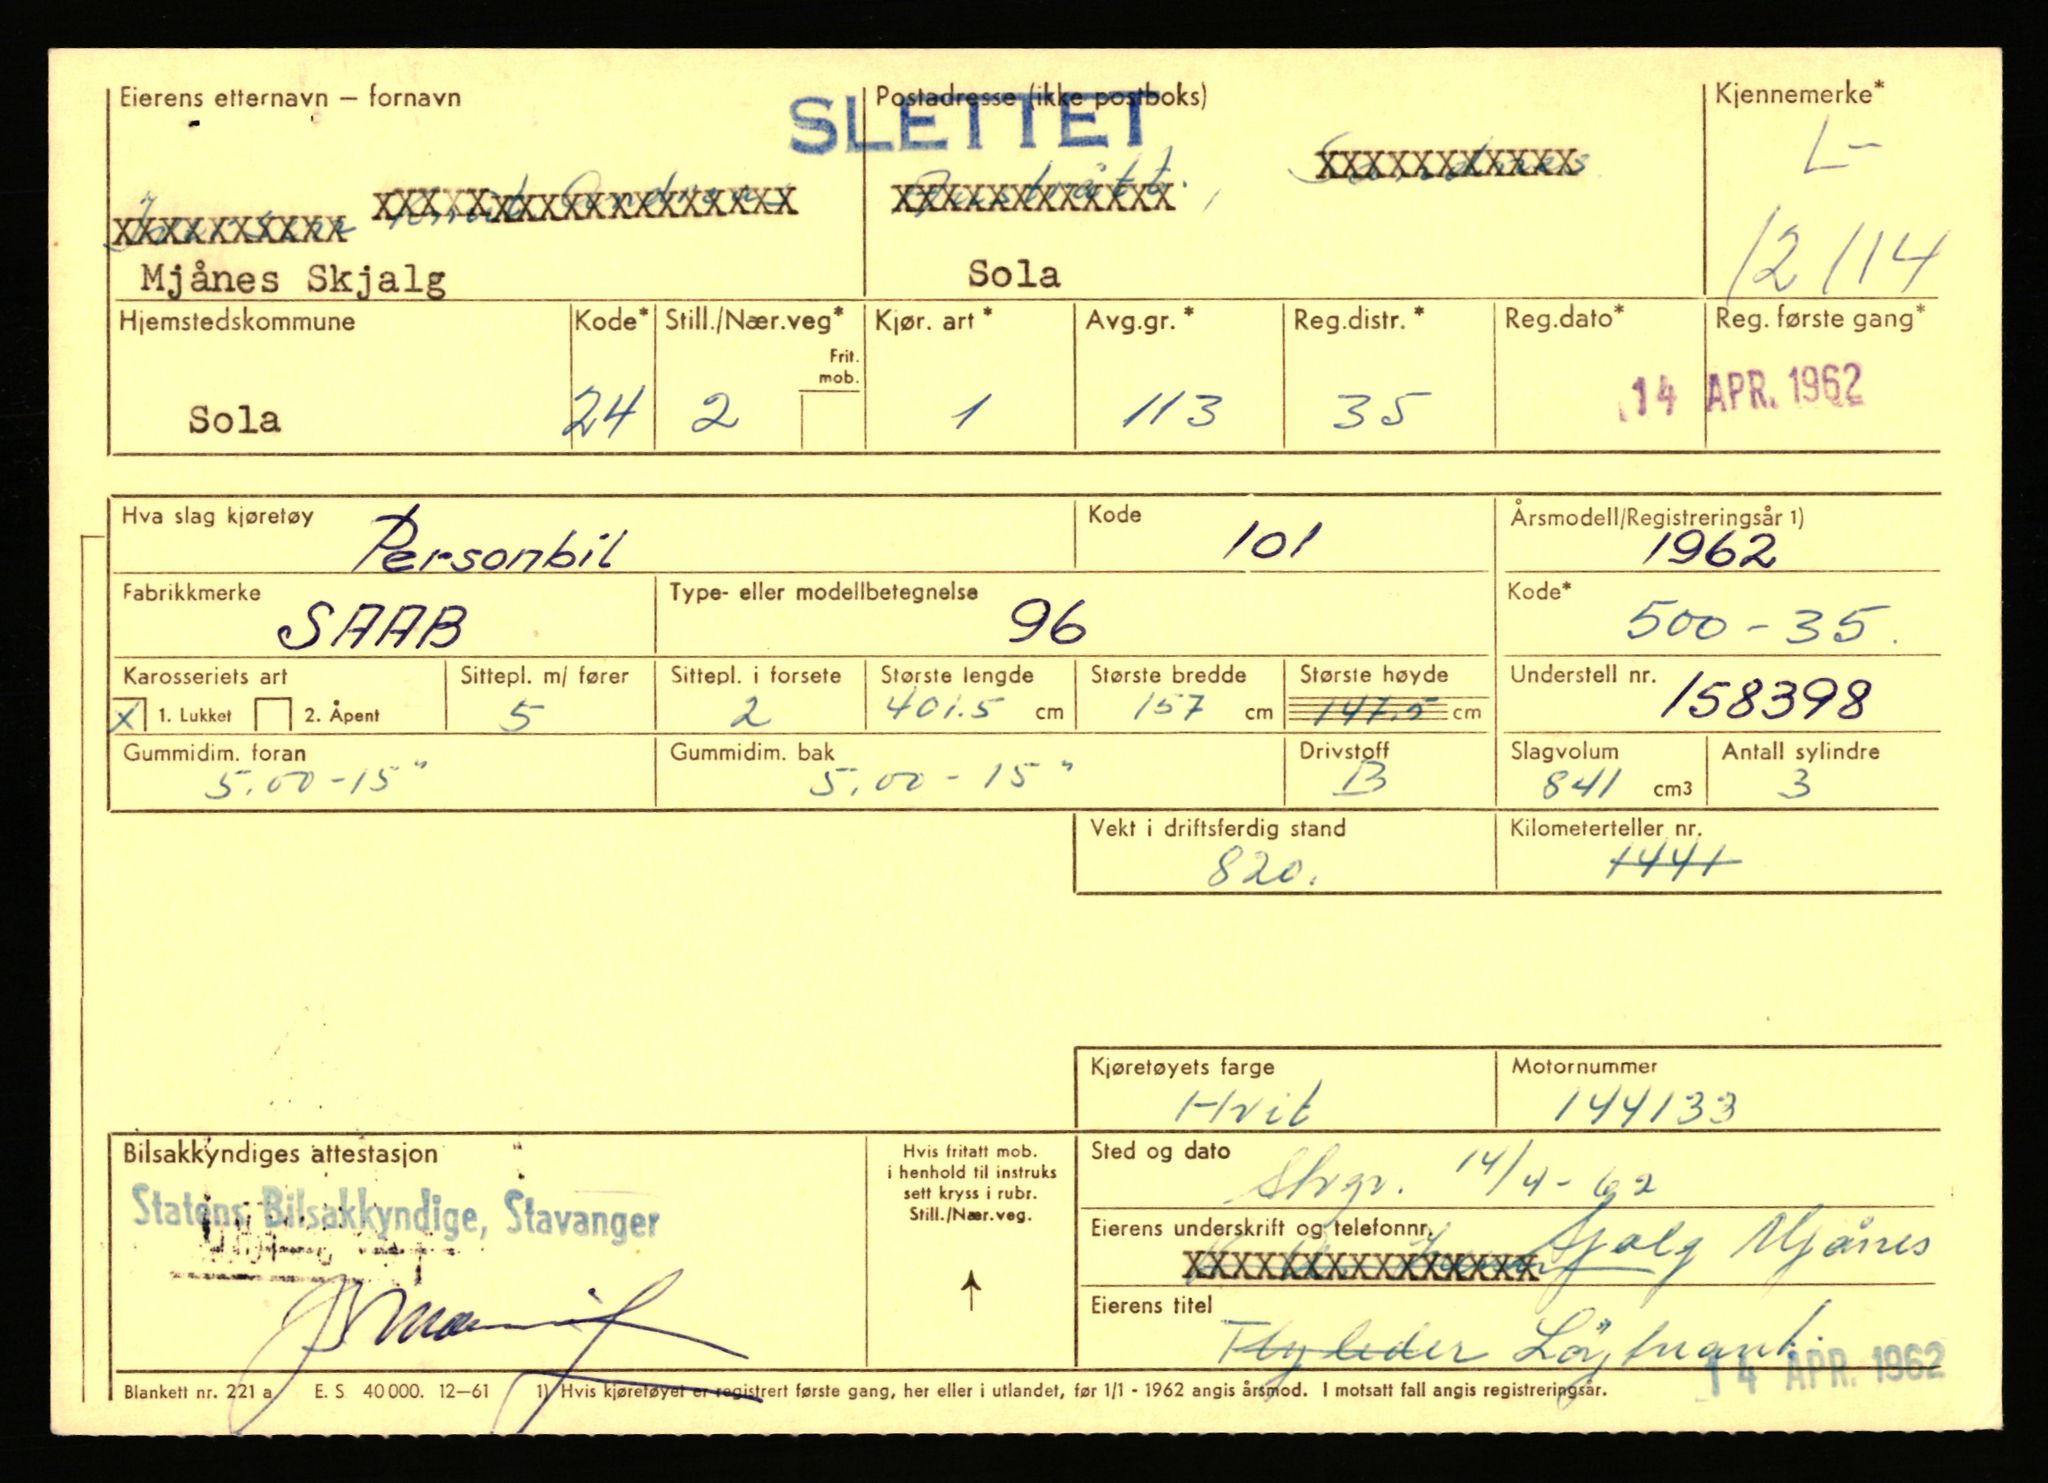 Eierens etternavn – fornavn
Postadresse (ikke postboks)
Kjennemerke*
SLETTET
L-
12114
Mjånes Skjalg
Sola
Hjemstedskommune
Kode*
Still./Nær.veg*
Frit. mob.
Kjør. art *
Avg.gr. *
Reg.distr. *
Reg.dato*
Reg. første gang*
Sola
24
2
1
113
35
14 APR. 1962
Hva slag kjøretøy
Personbil
Kode
101
Årsmodell/Registreringsår 1)
1962
Fabrikkmerke
SAAB
Type- eller modellbetegnelse
96
Kode*
500-35.
Karosseriets art
X 1. Lukket 2. Åpent
Sittepl. m/ fører
5
Sittepl. i forsete
2
Største lengde
401.5 cm
Største bredde
157 cm
Største høyde
147.5 cm
Understell nr.
158398
Gummidim. foran
5.00-15"
Gummidim. bak
5.00-15"
Drivstoff
B
Slagvolum
841 cm3
Antall sylindre
3
Vekt i driftsferdig stand
820.
Kilometerteller nr.
1441
Kjøretøyets farge
Hvit
Motornummer
144133
Bilsakkyndiges attestasjon
Statens Bilsakkyndige, Stavanger
Hvis fritatt mob.
i henhold til instruks
sett kryss i rubr.
Still./Nær.veg.
Sted og dato
Stvgr. 14/4-62
Eierens underskrift og telefonnr.
Sjalg Mjånes
Eierens titel
Flyleder Löytnant.
14 APR. 1962
Blankett nr. 221 a E. S 40 000. 12–61 1) Hvis kjøretøyet er registrert første gang, her eller i utlandet, før 1/1 - 1962 angis årsmod. I motsatt fall angis registreringsår.